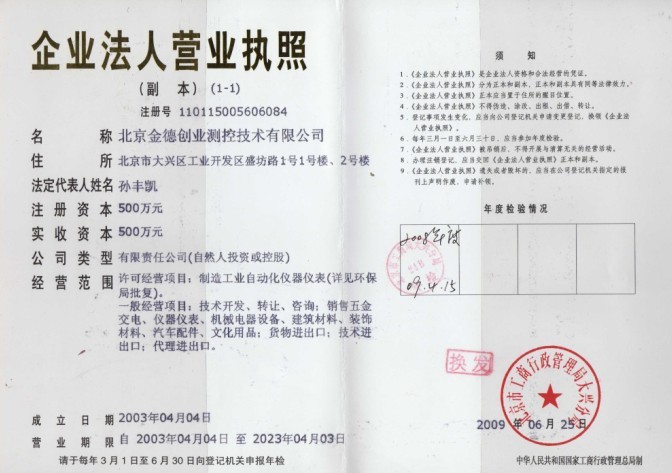 企业法人营业执照
(副 本) (1-1)
注册号 110115005606084
名 称 北京金德创业测控技术有限公司
住 所 北京市大兴区工业开发区盛坊路1号1号楼、2号楼
法定代表人姓名 孙丰凯
注册资本 500万元
实收资本 500万元
公司类型 有限责任公司(自然人投资或控股)
经营范围 许可经营项目：制造工业自动化仪器仪表(详见环保
局批复)。
一般经营项目：技术开发、转让、咨询；销售五金
交电、仪器仪表、机械电器设备、建筑材料、装饰
材料、汽车配件、文化用品；货物进出口；技术进
出口；代理进出口。
成立日期 2003年04月04日
营业期限 自 2003年04月04日 至 2023年04月03日
请于每年3月1日至6月30日向登记机关申报年检
须 知
1．《企业法人营业执照》是企业法人资格和合法经营的凭证。
2．《企业法人营业执照》分为正本和副本，正本和副本具有同等法律效力。
3．《企业法人营业执照》正本应当置于住所的醒目位置。
4．《企业法人营业执照》不得伪造、涂改、出租、出借、转让。
5．登记事项发生变化，应当向公司登记机关申请变更登记，换领《企业法
人营业执照》。
6．每年三月一日至六月三十日，应当参加年度检验。
7．《企业法人营业执照》被吊销后，不得开展与清算无关的经营活动。
8．办理注销登记，应当交回《企业法人营业执照》正本和副本。
9．《企业法人营业执照》遗失或者毁坏的，应当在公司登记机关指定的报
刊上声明作废，申请补领。
年度检验情况
2008年度
09.4.15
换发
北京市工商行政管理局大兴分局
2009 年 06 月 25 日
中华人民共和国国家工商行政管理总局制